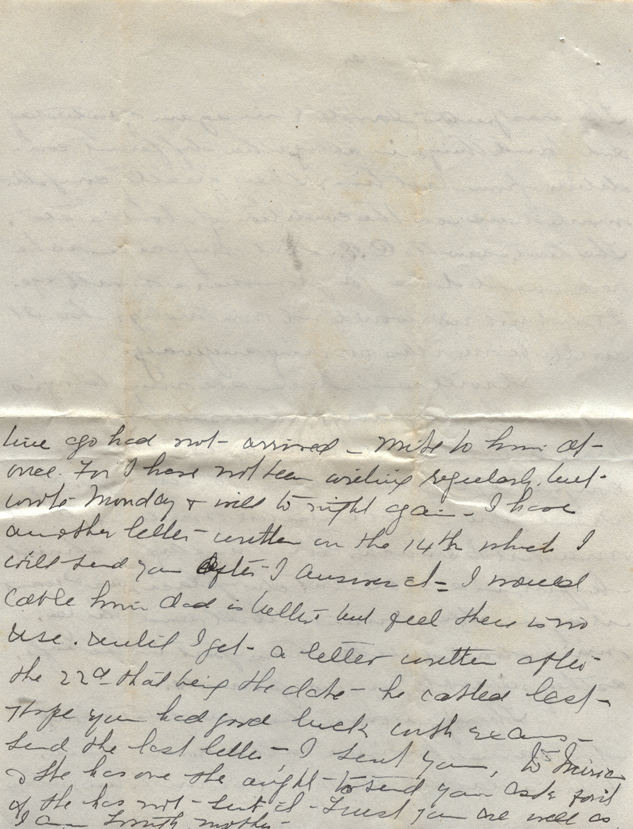 time ago had not arrived – write to him at
once. For I have not been writing regularly, but
wrote Monday & will to night again – I have
another letter written on the 14th which I
will send you after I answer it – I would
cable him dad is better but feel there is no
use. until I get a letter written after
the 22d that being the date he cabled last –
I hope you had good luck with exams –
Send the last letter I sent you, to
& she has one she ought to send you ask for it
if she has not sent it – trust you are well as
I am mother –